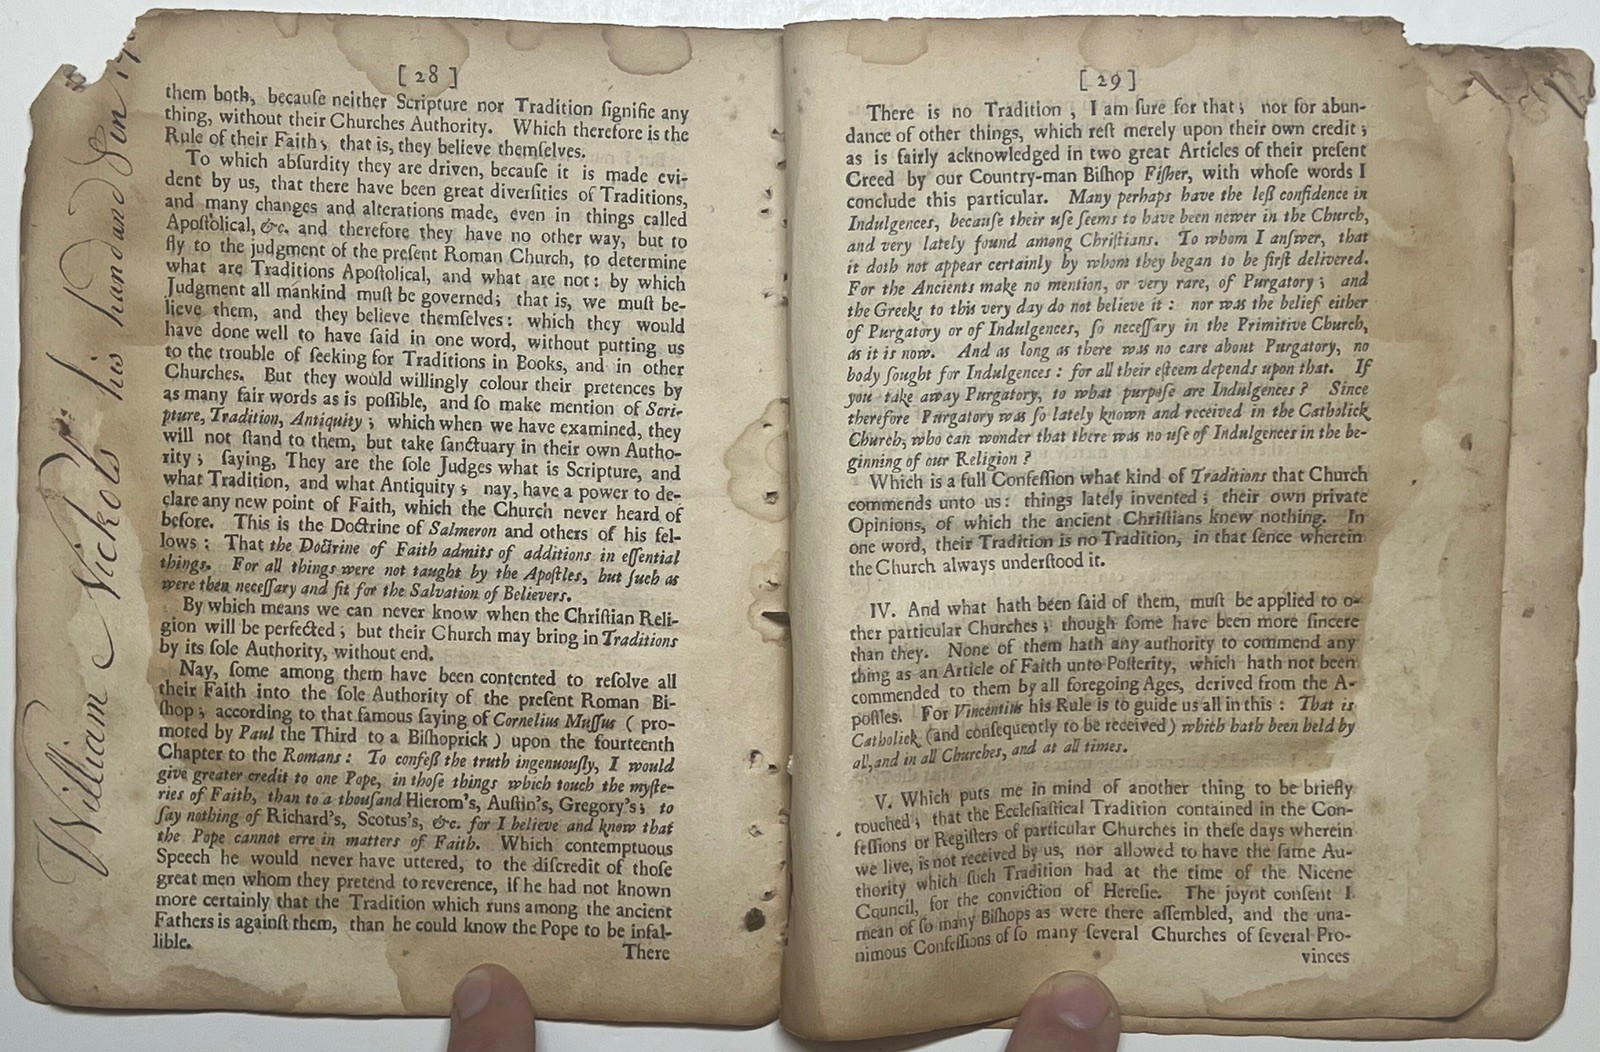 William Nickols his hand and Sin 17
[ 28 ]
them both, becauſe neither Scripture nor Tradition ſignifie any
thing, without their Churches Authority. Which therefore is the
Rule of their Faith; that is, they believe themſelves.
To which abſurdity they are driven, becauſe it is made evi-
dent by us, that there have been great diverſities of Traditions,
and many changes and alterations made, even in things called
Apoſtolical, &c. and therefore they have no other way, but to
fly to the judgment of the preſent Roman Church, to determine
what are Traditions Apoſtolical, and what are not: by which
Judgment all mankind muſt be governed; that is, we muſt be-
lieve them, and they believe themſelves: which they would
have done well to have ſaid in one word, without putting us
to the trouble of ſeeking for Traditions in Books, and in other
Churches. But they would willingly colour their pretences by
as many fair words as is poſſible, and ſo make mention of Scri-
pture, Tradition, Antiquity; which when we have examined, they
will not ſtand to them, but take ſanctuary in their own Autho-
rity; ſaying, They are the ſole Judges what is Scripture, and
what Tradition, and what Antiquity; nay, have a power to de-
clare any new point of Faith, which the Church never heard of
before. This is the Doctrine of Salmeron and others of his fel-
lows: That the Doctrine of Faith admits of additions in eſſential
things. For all things were not taught by the Apoſtles, but ſuch as
were then neceſſary and fit for the Salvation of Believers.
By which means we can never know when the Chriſtian Reli-
gion will be perfected; but their Church may bring in Traditions
by its ſole Authority, without end.
Nay, ſome among them have been contented to reſolve all
their Faith into the ſole Authority of the preſent Roman Bi-
ſhop; according to that famous ſaying of Cornelius Muſſus (pro-
moted by Paul the Third to a Biſhoprick) upon the fourteenth
Chapter to the Romans: To confeſs the truth ingenuouſly, I would
give greater credit to one Pope, in thoſe things which touch the myſte-
ries of Faith, than to a thouſand Hierom's, Auſtin's, Gregory's; to
ſay nothing of Richard's, Scotus's, &c. for I believe and know that
the Pope cannot erre in matters of Faith. Which contemptuous
Speech he would never have uttered, to the diſcredit of thoſe
great men whom they pretend to reverence, if he had not known
more certainly that the Tradition which runs among the ancient
Fathers is againſt them, than he could know the Pope to be infal-
lible.
There
[ 29 ]
There is no Tradition, I am ſure for that; nor for abun-
dance of other things, which reſt merely upon their own credit;
as is fairly acknowledged in two great Articles of their preſent
Creed by our Country-man Biſhop Fiſher, with whoſe words I
conclude this particular. Many perhaps have the leſs confidence in
Indulgences, becauſe their uſe ſeems to have been newer in the Church,
and very lately found among Chriſtians. To whom I anſwer, that
it doth not appear certainly by whom they began to be firſt delivered.
For the Ancients make no mention, or very rare, of Purgatory; and
the Greeks to this very day do not believe it: nor was the belief either
of Purgatory or of Indulgences, ſo neceſſary in the Primitive Church,
as it is now. And as long as there was no care about Purgatory, no
body ſought for Indulgences: for all their eſteem depends upon that. If
you take away Purgatory, to what purpoſe are Indulgences? Since
therefore Purgatory was ſo lately known and received in the Catholick
Church, who can wonder that there was no uſe of Indulgences in the be-
ginning of our Religion?
Which is a full Confeſſion what kind of Traditions that Church
commends unto us: things lately invented; their own private
Opinions, of which the ancient Chriſtians knew nothing. In
one word, their Tradition is no Tradition, in that ſence wherein
the Church always underſtood it.
IV. And what hath been ſaid of them, muſt be applied to o-
ther particular Churches; though ſome have been more ſincere
than they. None of them hath any authority to commend any
thing as an Article of Faith unto Poſterity, which hath not been
commended to them by all foregoing Ages, derived from the A-
poſtles. For Vincentius his Rule is to guide us all in this: That is
Catholick (and conſequently to be received) which hath been held by
all, and in all Churches, and at all times.
V. Which puts me in mind of another thing to be briefly
touched; that the Eccleſiaſtical Tradition contained in the Con-
feſſions or Regiſters of particular Churches in theſe days wherein
we live, is not received by us, nor allowed to have the ſame Au-
thority which ſuch Tradition had at the time of the Nicene
Council, for the conviction of Hereſie. The joynt conſent I
mean of ſo many Biſhops as were there aſſembled, and the una-
nimous Confeſſions of ſo many ſeveral Churches of ſeveral Pro-
vinces